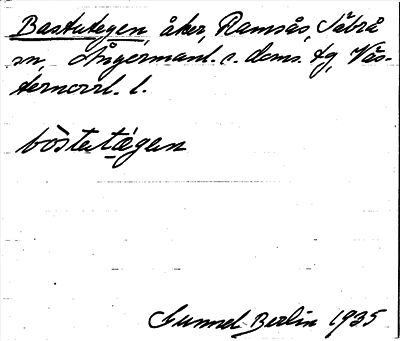 Bastutegen, åker, Ramsås, Säbrå
sn, Ångermanl. s. doms. tg, Väs-
ternorrl. l.
bòstutä́gen
Gunnel Berlin 1935